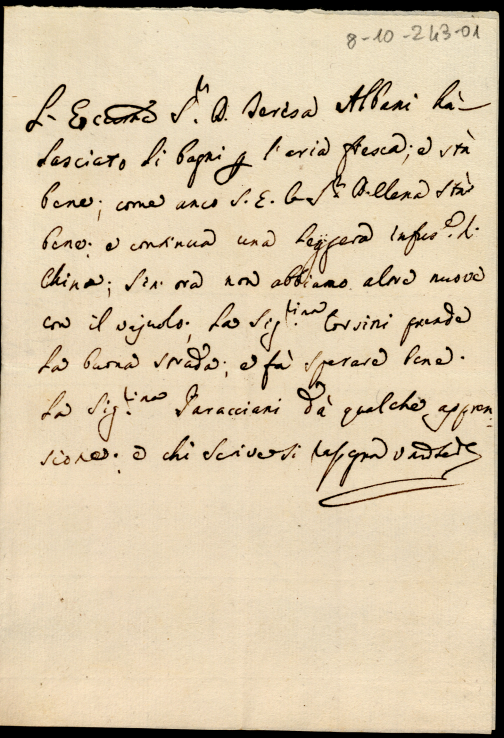 8-10-243-01
L' Eccma Sra D. Teresa Albani hà
lasciato li bagni p l'aria fresca; e stà
bene; come anco S. E. la Sra D. Elena stà
bene; e continua una leggera infusne di
China; sin ora non abbiamo altre nuove
con il vajuolo; la Sigrina Corsini prende
la buona strada; e fà sperare bene.
La Sigrina Paracciani dà qualche appren=
sione; e chi scrive si